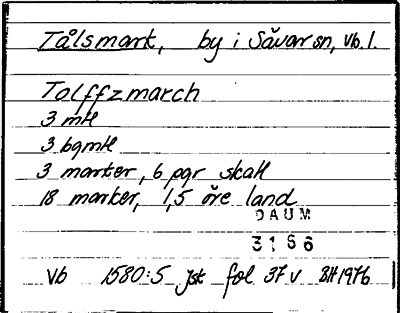 Tålsmark, by i Sävar sn, Vb. l.
Tolffzmarch
3 mtl
3 bqmtl
3 marker, 6 pgr skatt
18 marker, 1,5 öre land
DAUM
3186
Vb 1580:5 jst fol 37 v BH 1976